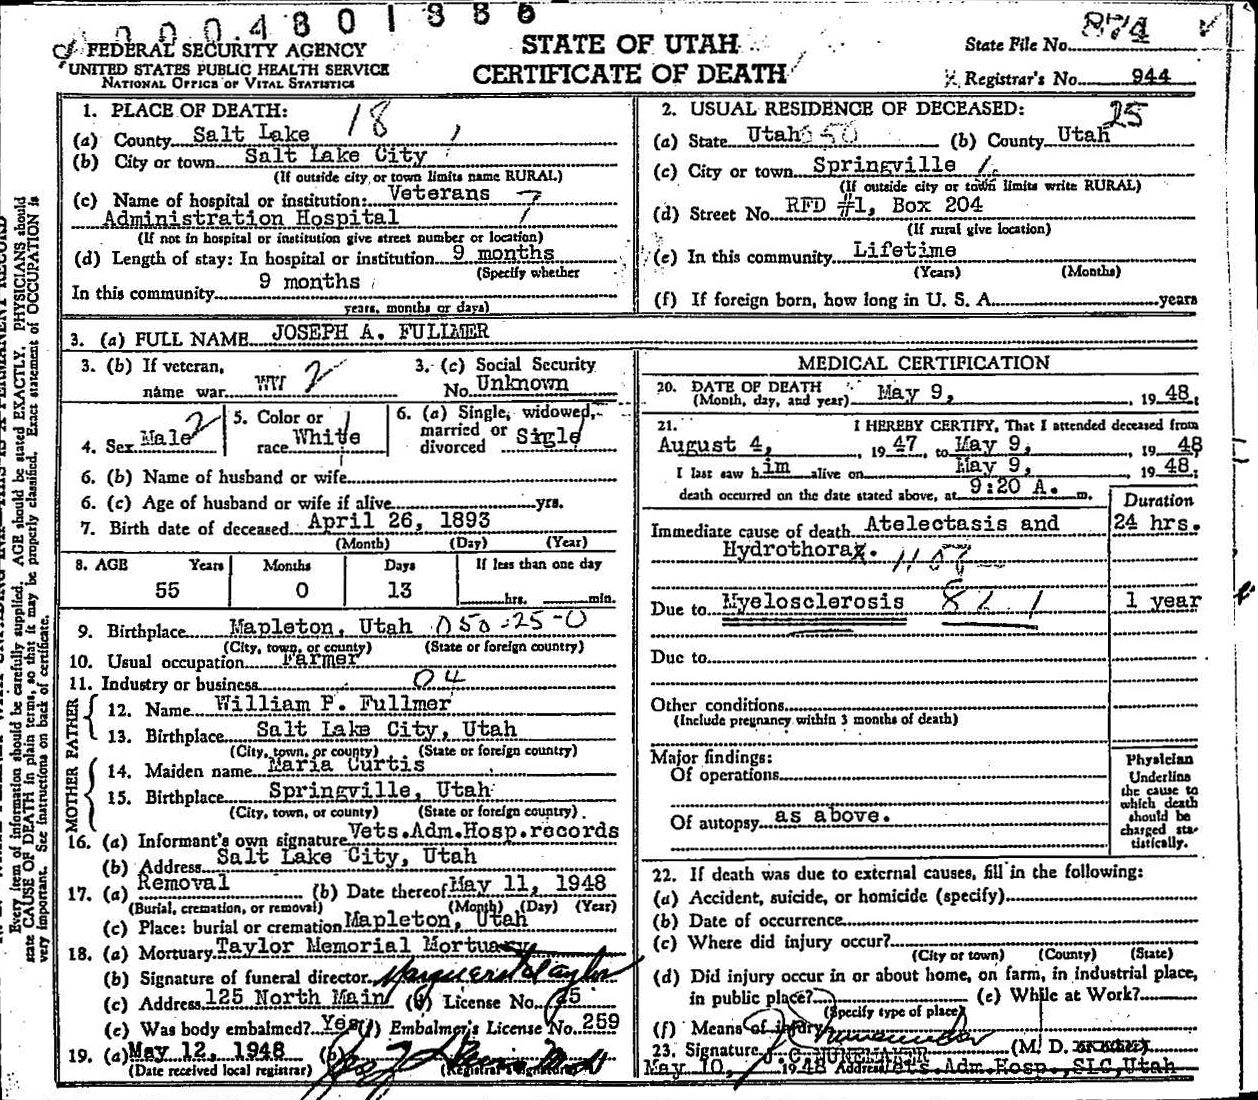 0004801886
FEDERAL SECURITY AGENCY
UNITED STATES PUBLIC HEALTH SERVICE
NATIONAL OFFICE OF VITAL STATISTICS
STATE OF UTAH
CERTIFICATE OF DEATH
State File No. 874
Registrar's No. 944
1. PLACE OF DEATH: 18
(a) County Salt Lake
(b) City or town Salt Lake City
(If outside city or town limits name RURAL)
(c) Name of hospital or institution: Veterans
Administration Hospital 7
(If not in hospital or institution give street number or location)
(d) Length of stay: In hospital or institution 9 months
(Specify whether
In this community 9 months
years, months or days)
2. USUAL RESIDENCE OF DECEASED: 25
(a) State Utah 050 (b) County Utah
(c) City or town Springville
(If outside city or town limits write RURAL)
(d) Street No. RFD #1, Box 204
(If rural give location)
(e) In this community Lifetime
(Years) (Months)
(f) If foreign born, how long in U. S. A. years
3. (a) FULL NAME JOSEPH A. FULLMER
3. (b) If veteran,
name war WW 2
3. (c) Social Security
No. Unknown
4. Sex Male 2
5. Color or
race White 1
6. (a) Single, widowed,
married or
divorced Sigle 1
6. (b) Name of husband or wife
6. (c) Age of husband or wife if alive yrs.
7. Birth date of deceased April 26, 1893
(Month) (Day) (Year)
8. AGE Years Months Days If less than one day
55 0 13 hrs. min.
9. Birthplace Mapleton, Utah 050-25-0
(City, town, or county) (State or foreign country)
10. Usual occupation Farmer
11. Industry or business 04
FATHER
12. Name William P. Fullmer
13. Birthplace Salt Lake City, Utah
(City, town, or county) (State or foreign country)
MOTHER
14. Maiden name Maria Curtis
15. Birthplace Springville, Utah
(City, town, or county) (State or foreign country)
16. (a) Informant's own signature Vets.Adm.Hosp.records
(b) Address Salt Lake City, Utah
17. (a) Removal (b) Date thereof May 11, 1948
(Burial, cremation, or removal) (Month) (Day) (Year)
(c) Place: burial or cremation Mapleton, Utah
18. (a) Mortuary Taylor Memorial Mortuary
(b) Signature of funeral director Marguerite Taylor
(c) Address 125 North Main (d) License No. 75
(e) Was body embalmed? Yes (f) Embalmer's License No. 259
19. (a) May 12, 1948 (b)
(Date received local registrar) (Registrar's signature)
MEDICAL CERTIFICATION
20. DATE OF DEATH
(Month, day, and year) May 9, , 1948.
21. I HEREBY CERTIFY, That I attended deceased from
August 4, , 1947, to May 9, , 1948
I last saw him alive on May 9, , 1948;
death occurred on the date stated above, at 9:20 A. m.
Duration
Immediate cause of death Atelectasis and 24 hrs.
Hydrothorax.
Due to Myelosclerosis 82-1 1 year
Due to
Other conditions
(Include pregnancy within 3 months of death)
Major findings:
Of operations
Of autopsy as above.
Physician
Underline
the cause to
which death
should be
charged sta-
tistically.
22. If death was due to external causes, fill in the following:
(a) Accident, suicide, or homicide (specify)
(b) Date of occurrence
(c) Where did injury occur?
(City or town) (County) (State)
(d) Did injury occur in or about home, on farm, in industrial place,
in public place? (e) While at Work?
(Specify type of place)
(f) Means of injury
23. Signature J. C. NUNEMAKER (M. D.
May 10, 1948 Address Vets.Adm.Hosp.,SLC,Utah
Every item of information should be carefully supplied. AGE should be stated EXACTLY. PHYSICIANS should
state CAUSE OF DEATH in plain terms, so that it may be properly classified. Exact statement of OCCUPATION is
very important. See instructions on back of certificate.